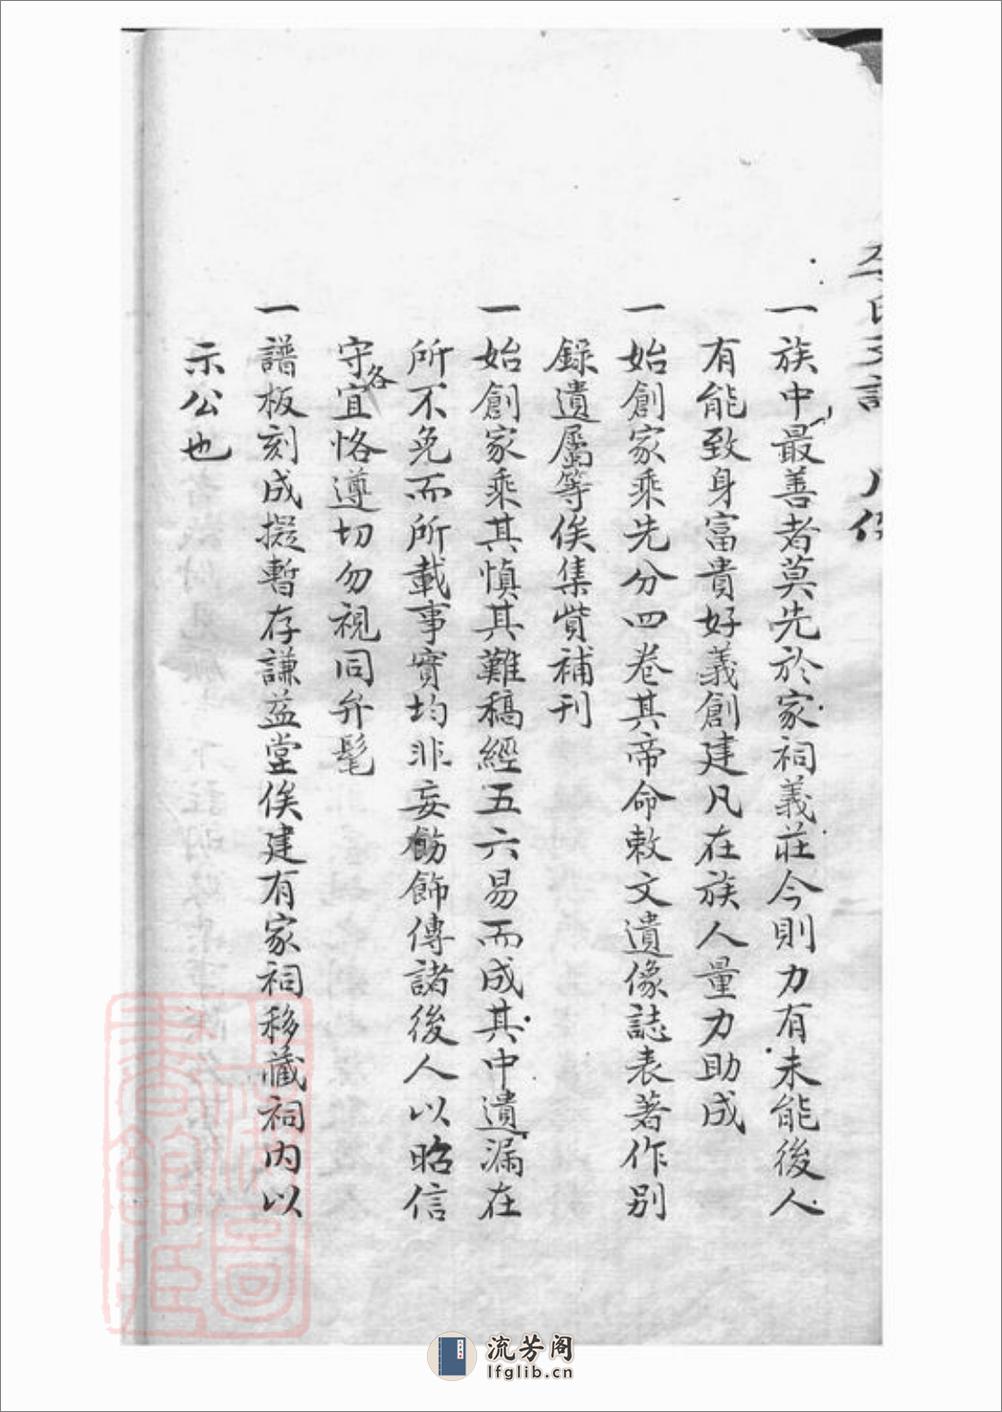 一族中最善者莫先於家祠義莊今則力有未能後人
有能致身富貴好義創建凡在族人量力助成
一始創家乘先分四卷其帝命敕文遺像誌表著作別
錄遺屬等俟集貲補刊
一始創家乘其慎其難稿經五六易而成其中遺漏在
所不免而所載事實均非妄飭飾傳諸後人以昭信
守各宜恪遵切勿視同弁髦
一譜板刻成擬暫存謙益堂俟建有家祠移藏祠內以
示公也
流芳阁
lfglib.cn